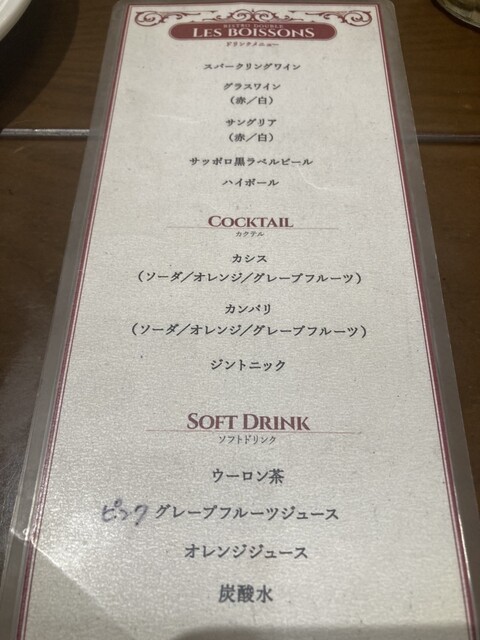 BISTRO DOUBLE
LES BOISSONS
ドリンクメニュー
スパークリングワイン
グラスワイン
（赤／白）
サングリア
（赤／白）
サッポロ黒ラベルビール
ハイボール
COCKTAIL
カクテル
カシス
（ソーダ／オレンジ／グレープフルーツ）
カンパリ
（ソーダ／オレンジ／グレープフルーツ）
ジントニック
SOFT DRINK
ソフトドリンク
ウーロン茶
ピンク グレープフルーツジュース
オレンジジュース
炭酸水